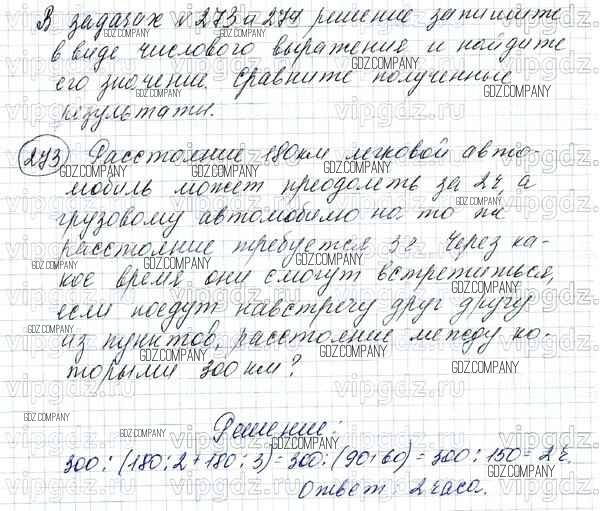 В задачах № 273 и 274 решение запишите
в виде числового выражения и найдите
его значение. Сравните полученные
результаты.
273 Расстояние 180 км легковой авто-
мобиль может преодолеть за 2 ч, а
грузовому автомобилю на то же
расстояние требуется 3 ч. Через ка-
кое время они смогут встретиться,
если поедут навстречу друг другу
из пунктов, расстояние между ко-
торыми 300 км?
Решение:
300 : (180 : 2 + 180 : 3) = 300 : (90 + 60) = 300 : 150 = 2 ч.
Ответ: 2 часа.